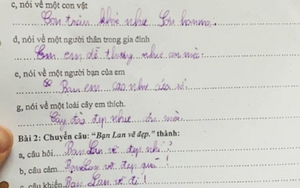 c, nói về một con vật
Con trăn khỏe như
d, nói về một người thân trong gia đình
Em em dễ thương như
e, nói về một người bạn của em
Bạn em cao như
g, nói về một loài cây em thích.
Cây đào đẹp như
Bài 2: Chuyển câu: "Bạn Lan vẽ đẹp." thành:
a, câu hỏi Bạn Lan vẽ đẹp
b, câu cảm Bạn Lan vẽ đẹp quá!
c, câu khiến Bạn Lan vẽ đi!